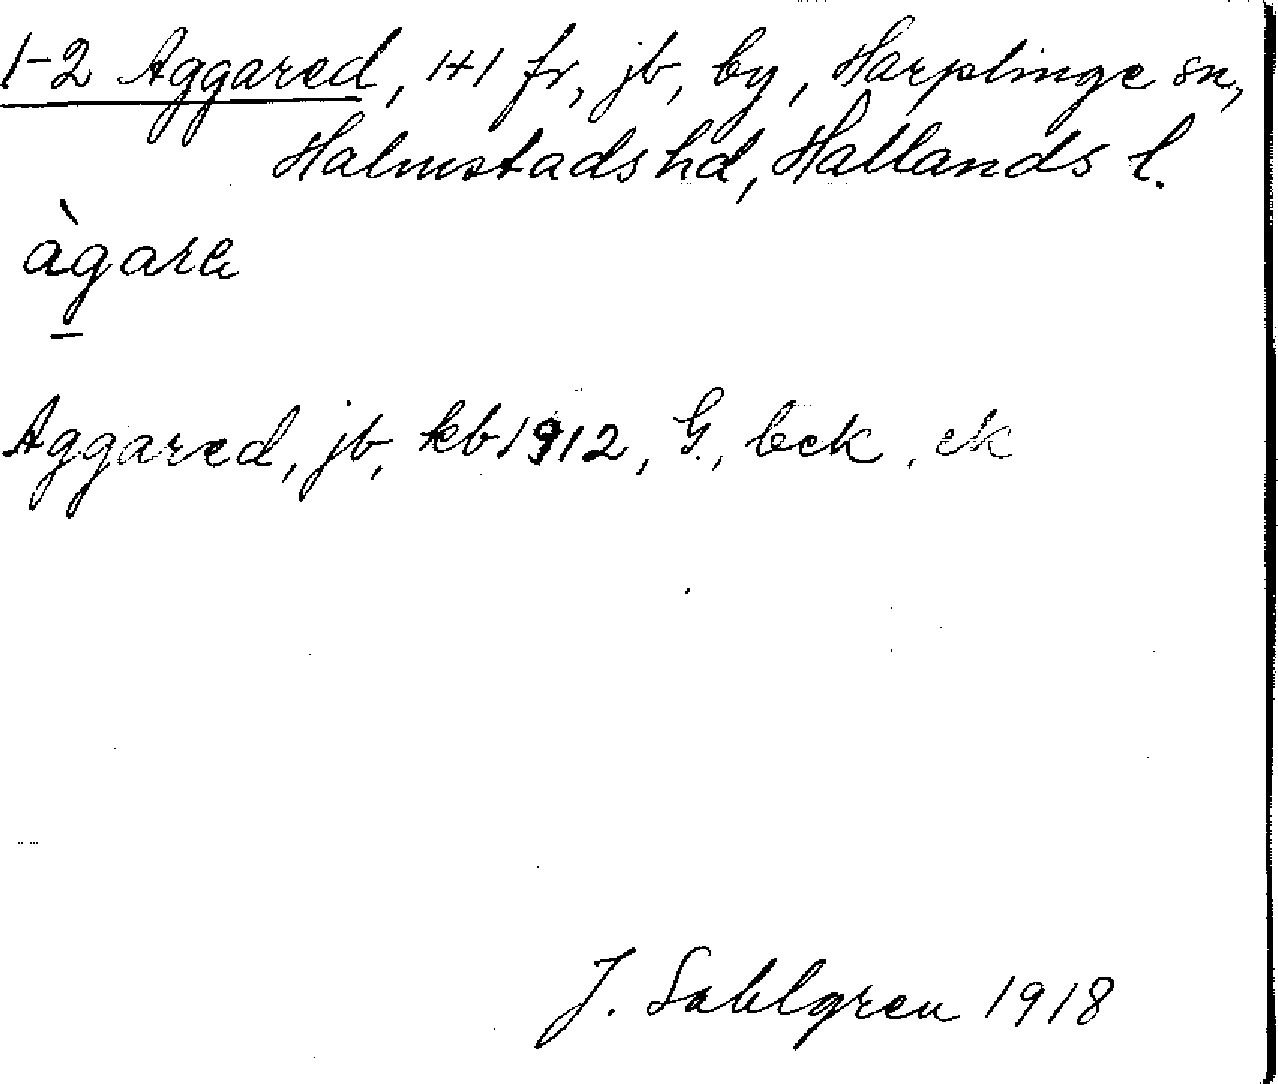 1-2 Aggared, 1+1 fr, jb, by, Harplinge sn,
Halmstads hd, Hallands l.
àgara
Aggared, jb, kb 1912, G, bek, ek
J. Sahlgren 1918